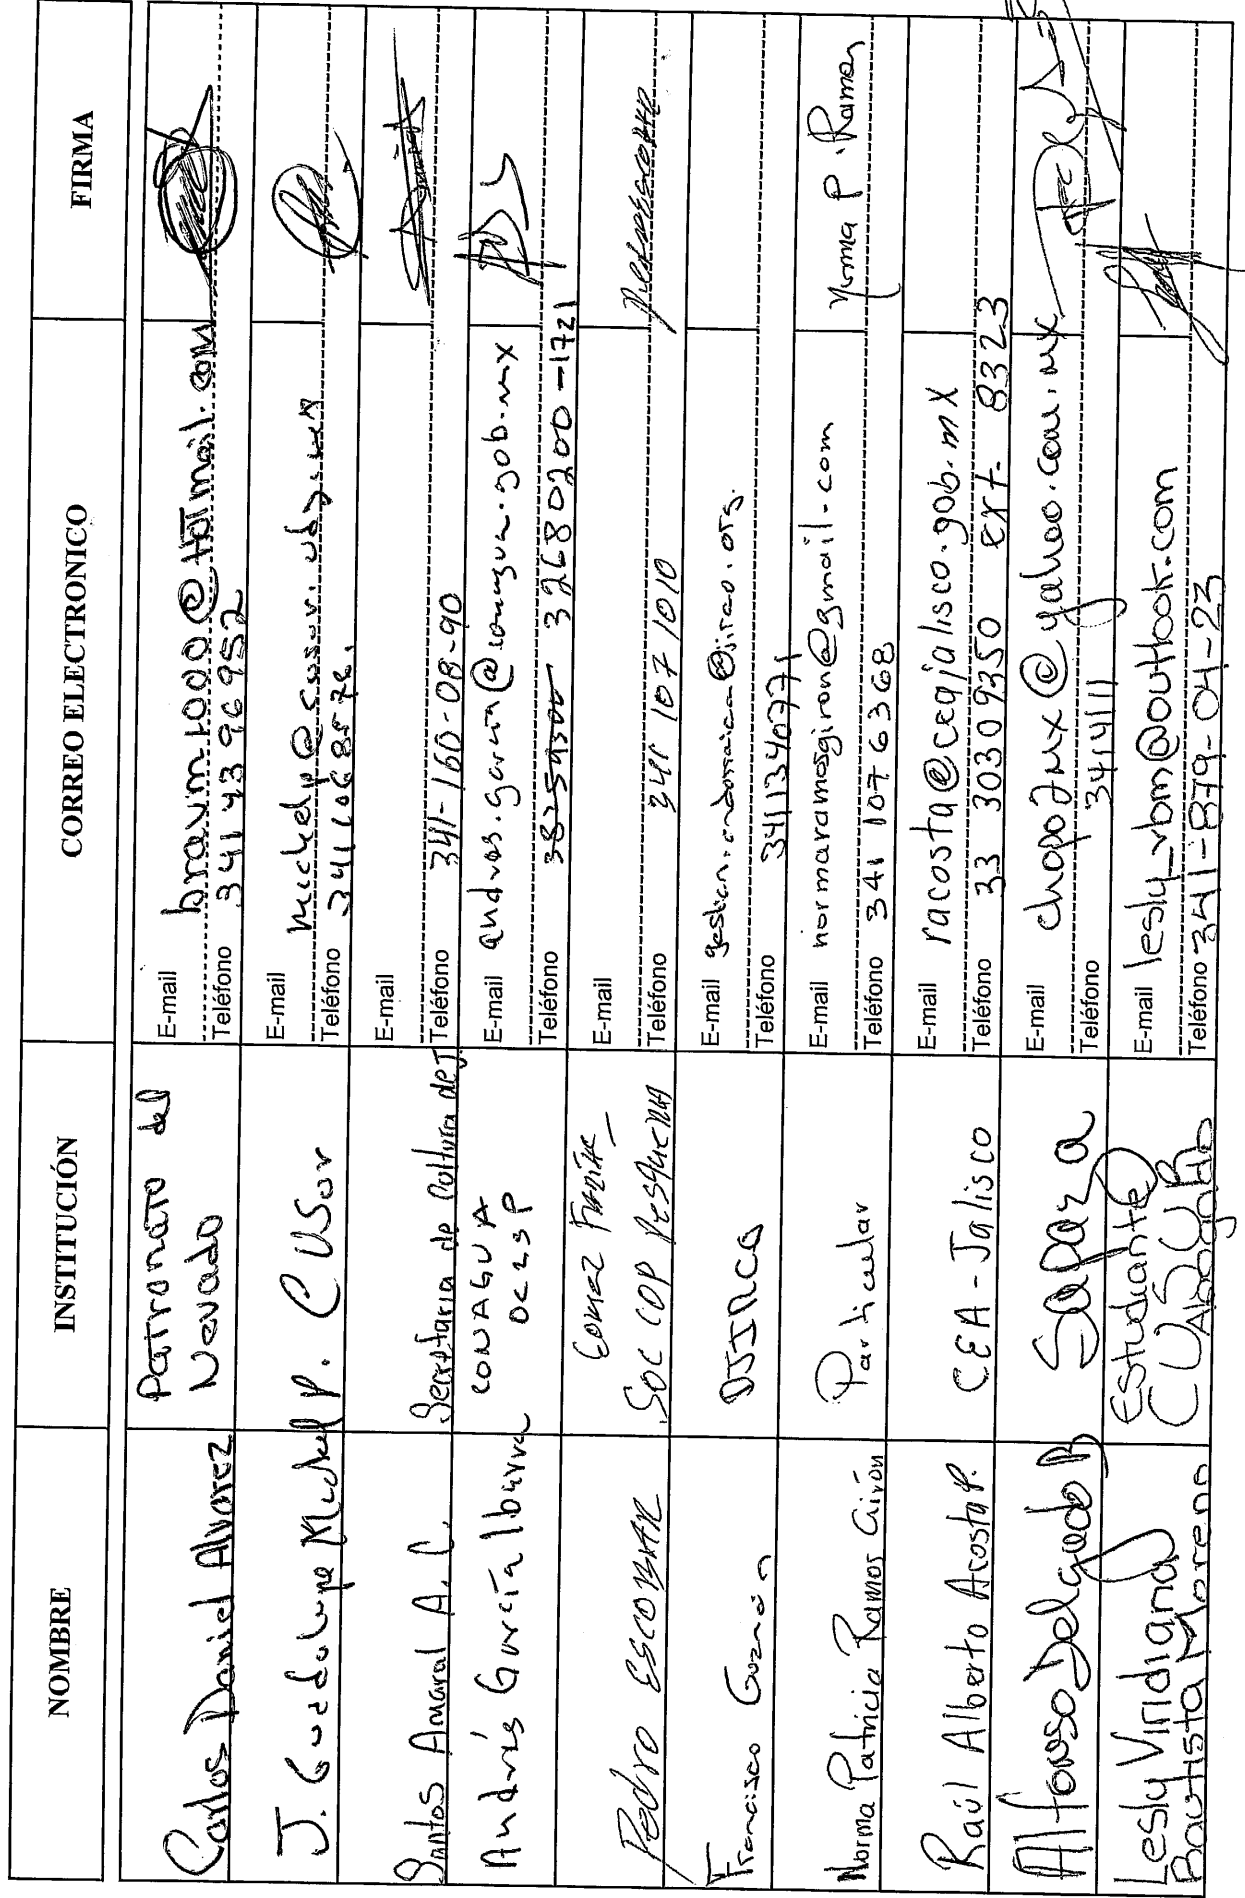 NOMBRE INSTITUCIÓN CORREO ELECTRONICO FIRMA
Carlos Daniel Alvarez
Patronato del
Nevado
E-mail braum1000@Hotmail.com
Teléfono 341 43 96 952
J. Guadalupe Michel P.
CUSur
E-mail
Teléfono
Santos Amaral A. C.
Secretaria de Cultura de J.
E-mail
Teléfono 341-160-08-90
Andrés García Ibarra
CONAGUA
OCLSP
E-mail andres.garcia@conagua.gob.mx
Teléfono 32680200-1721
Pedro ESCOBAR
SOC COP PESQUERA
E-mail
Teléfono 341 107 1010
Francisco Guzmán
DJIRCO
E-mail @jirco.org.
Teléfono 3411340771
Norma Patricia Ramos Girón
Particular
E-mail normaramosgiron@gmail.com
Teléfono 341 107 6368
Norma P. Ramos
Raúl Alberto Acosta P.
CEA-Jalisco
E-mail racosta@ceajalisco.gob.mx
Teléfono 33 30309350 ext. 8323
Alfonso Delgado B
Sapaza
E-mail chopo2mx@yahoo.com.mx
Teléfono 3414111
Lesly Viridiana
Bautista Moreno
Estudiante
CUSUR
Abogado
E-mail lesly_vbm@outlook.com
Teléfono 341-879-04-23